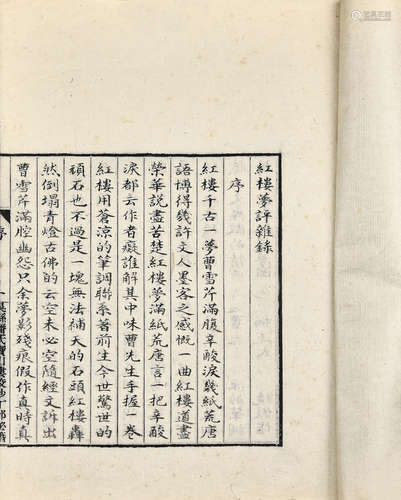 紅樓夢評雜錄
序
紅樓千古一夢曹雪芹滿腹辛酸淚幾紙荒唐
語博得幾許文人墨客之感慨一曲紅樓道盡
榮華說盡苦楚紅樓夢滿紙荒唐言一把辛酸
淚都云作者癡誰解其中味曹先生手握一卷
紅樓用蒼涼的筆調聯系著前生今世驚世的
頑石也不過是一塊無法補天的石頭紅樓轟
然倒塌青燈古佛的云空未必空隨經文訴出
曹雪芹滿腔幽怨只余夢影殘痕假作真時真
序
一